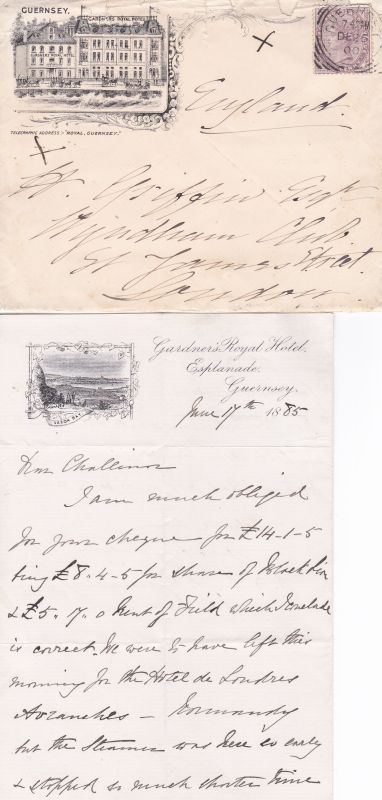 GUERNSEY.
GARDNERS ROYAL HOTEL
GARDNERS ROYAL HOTEL
TELEGRAPHIC ADDRESS:- "ROYAL, GUERNSEY."
GUERNSEY
DE
00
England.
H. Griffin Esqr
Wyndham Club
St James Street.
London
Gardner's Royal Hotel,
Esplanade.
Guernsey.
VAZON BAY
June 17th 1885
Dear Challinor
I am much obliged
for your cheque for £14-1-5
being £8.4-5 for share of
& £5.7.0 Rent of Field which I conclude
is correct. We were to have left this
morning for the Hotel de Londres
Avranches - Normandy
but the Steamer was here so early
& stopped so much shorter time